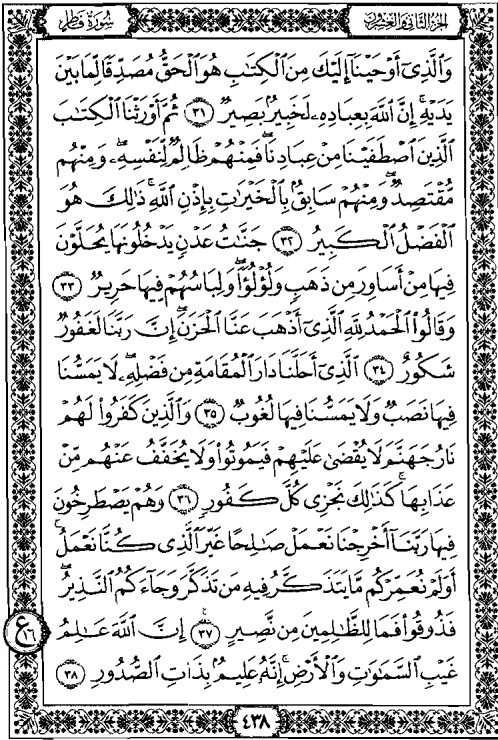 الجزء الثاني والعشرون
سورة فاطر
وَالَّذِي أَوْحَيْنَا إِلَيْكَ مِنَ الْكِتَٰبِ هُوَ الْحَقُّ مُصَدِّقًا لِّمَا بَيْنَ
يَدَيْهِ ۗ إِنَّ اللَّهَ بِعِبَادِهِ لَخَبِيرٌ بَصِيرٌ ٣١ ثُمَّ أَوْرَثْنَا الْكِتَٰبَ
الَّذِينَ اصْطَفَيْنَا مِنْ عِبَادِنَا ۖ فَمِنْهُمْ ظَالِمٌ لِّنَفْسِهِ وَمِنْهُم
مُّقْتَصِدٌ وَمِنْهُمْ سَابِقٌ بِالْخَيْرَٰتِ بِإِذْنِ اللَّهِ ۚ ذَٰلِكَ هُوَ
الْفَضْلُ الْكَبِيرُ ٣٢ جَنَّٰتُ عَدْنٍ يَدْخُلُونَهَا يُحَلَّوْنَ
فِيهَا مِنْ أَسَاوِرَ مِن ذَهَبٍ وَلُؤْلُؤًا ۖ وَلِبَاسُهُمْ فِيهَا حَرِيرٌ ٣٣
وَقَالُوا الْحَمْدُ لِلَّهِ الَّذِي أَذْهَبَ عَنَّا الْحَزَنَ ۖ إِنَّ رَبَّنَا لَغَفُورٌ
شَكُورٌ ٣٤ الَّذِي أَحَلَّنَا دَارَ الْمُقَامَةِ مِن فَضْلِهِ لَا يَمَسُّنَا
فِيهَا نَصَبٌ وَلَا يَمَسُّنَا فِيهَا لُغُوبٌ ٣٥ وَالَّذِينَ كَفَرُوا لَهُمْ
نَارُ جَهَنَّمَ لَا يُقْضَىٰ عَلَيْهِمْ فَيَمُوتُوا وَلَا يُخَفَّفُ عَنْهُم مِّنْ
عَذَابِهَا ۚ كَذَٰلِكَ نَجْزِي كُلَّ كَفُورٍ ٣٦ وَهُمْ يَصْطَرِخُونَ
فِيهَا رَبَّنَا أَخْرِجْنَا نَعْمَلْ صَٰلِحًا غَيْرَ الَّذِي كُنَّا نَعْمَلُ ۚ
أَوَلَمْ نُعَمِّرْكُم مَّا يَتَذَكَّرُ فِيهِ مَن تَذَكَّرَ وَجَاءَكُمُ النَّذِيرُ ۖ
فَذُوقُوا فَمَا لِلظَّٰلِمِينَ مِن نَّصِيرٍ ٣٧ إِنَّ اللَّهَ عَٰلِمُ
غَيْبِ السَّمَٰوَٰتِ وَالْأَرْضِ ۚ إِنَّهُ عَلِيمٌ بِذَاتِ الصُّدُورِ ٣٨
ع ١٦
٤٣٨